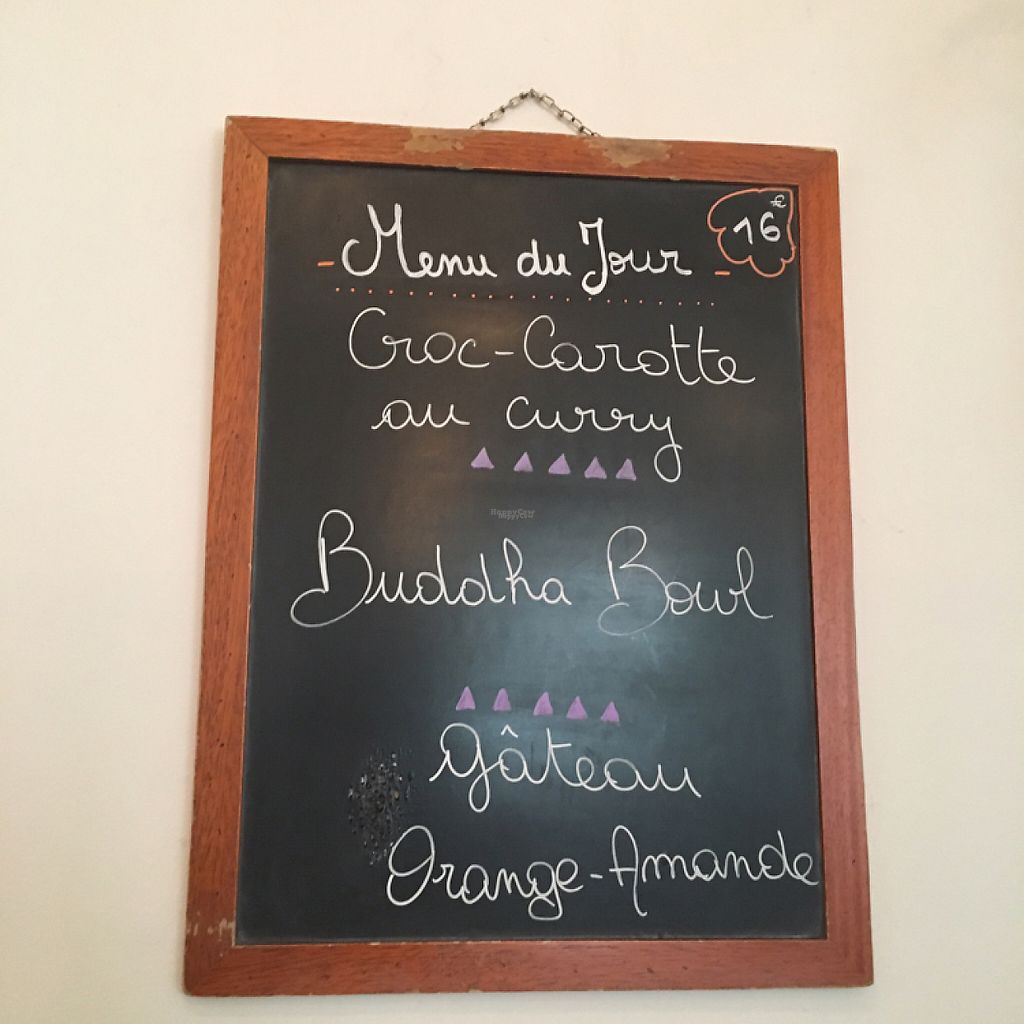 - Menu du Jour -
16 €
Croc-Carotte
au curry
HappyCow
Buddha Bowl
gâteau
Orange-Amande